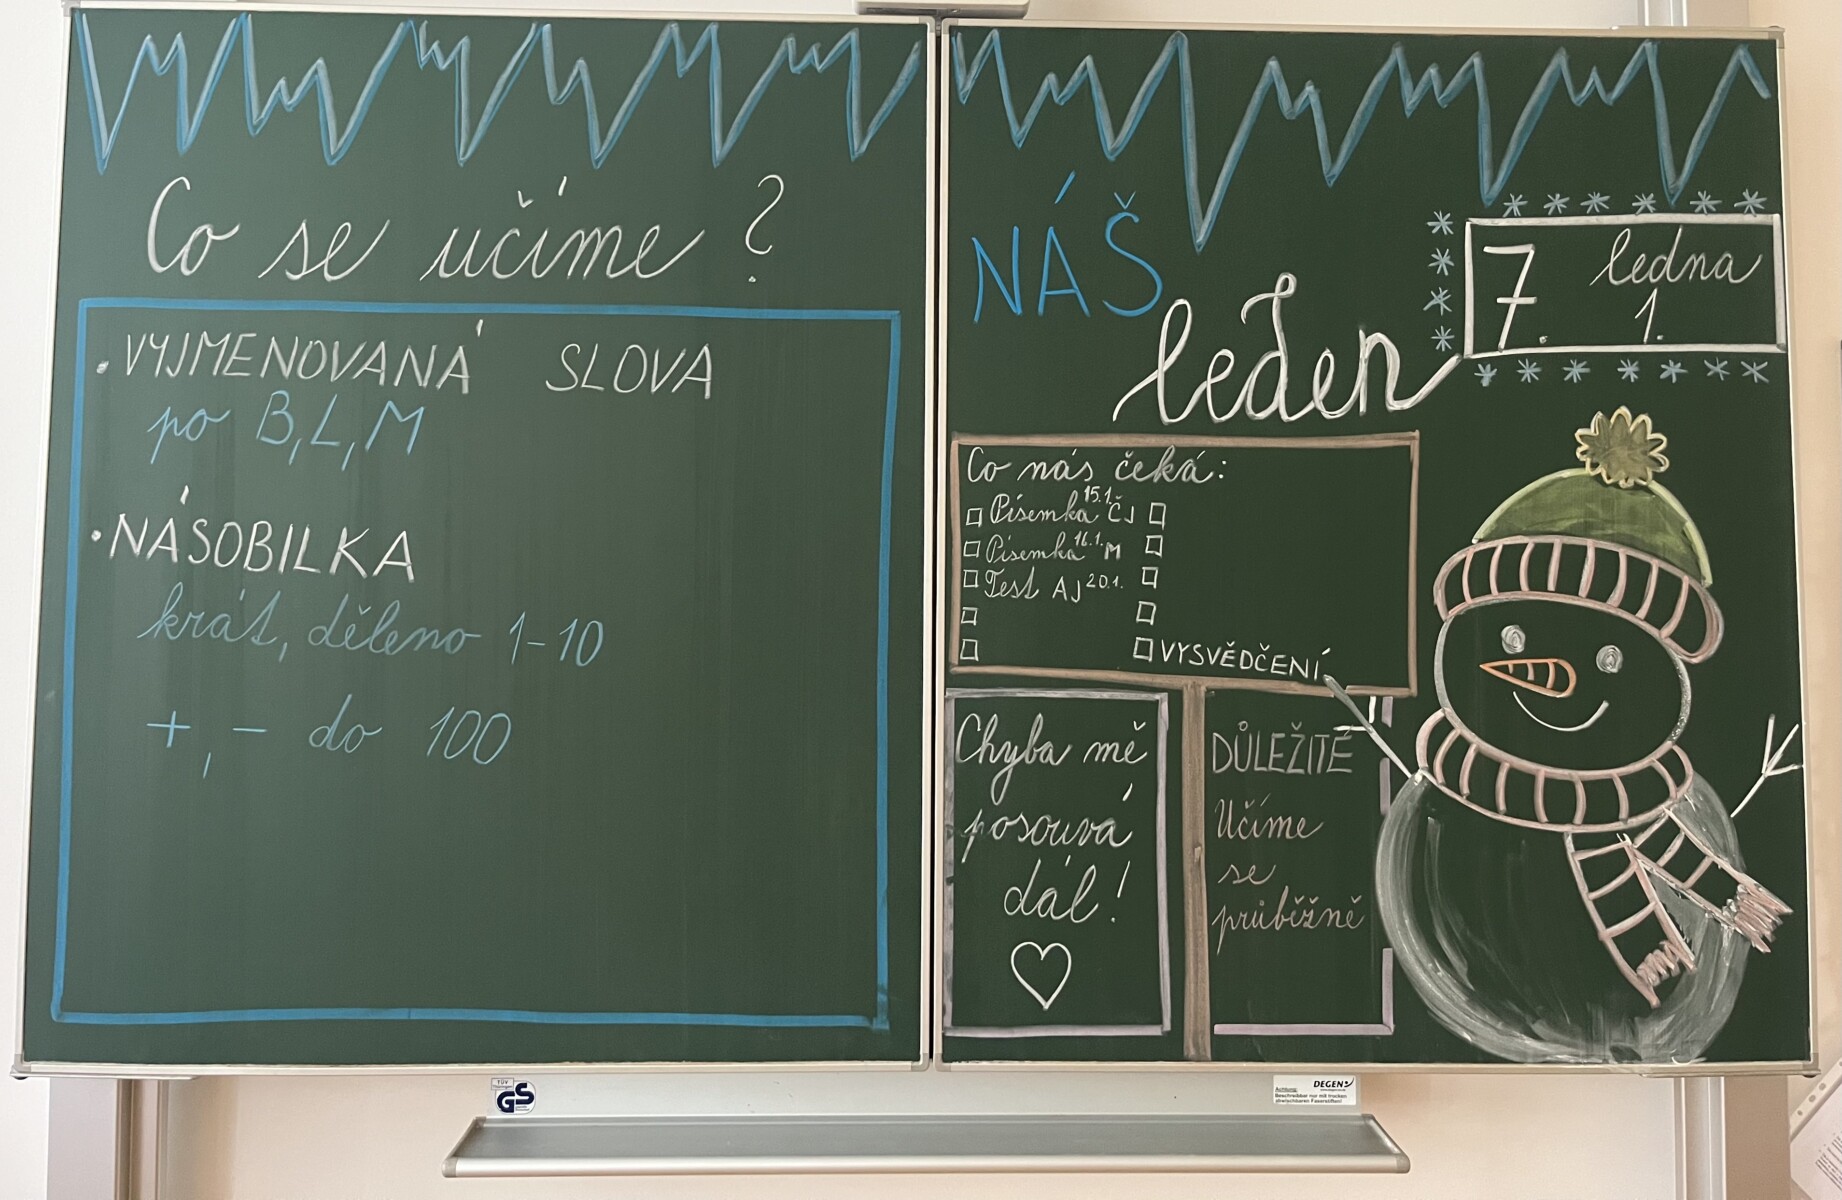 Co se učíme?
• VYJMENOVANÁ SLOVA
po B, L, M
• NÁSOBILKA
krát, děleno 1-10
+, - do 100
NÁŠ
leden
7. ledna
1.
Co nás čeká:
Písemka 15.1. ČJ
Písemka 16.1. M
Test AJ 20.1.
VYSVĚDČENÍ
Chyba mě
posouvá
dál!
DŮLEŽITÉ
Učíme
se
průběžně
TÜV
GS
Achtung:
DEGEN
Beschreibbar nur mit trocken
abwischbaren Faserstiften!